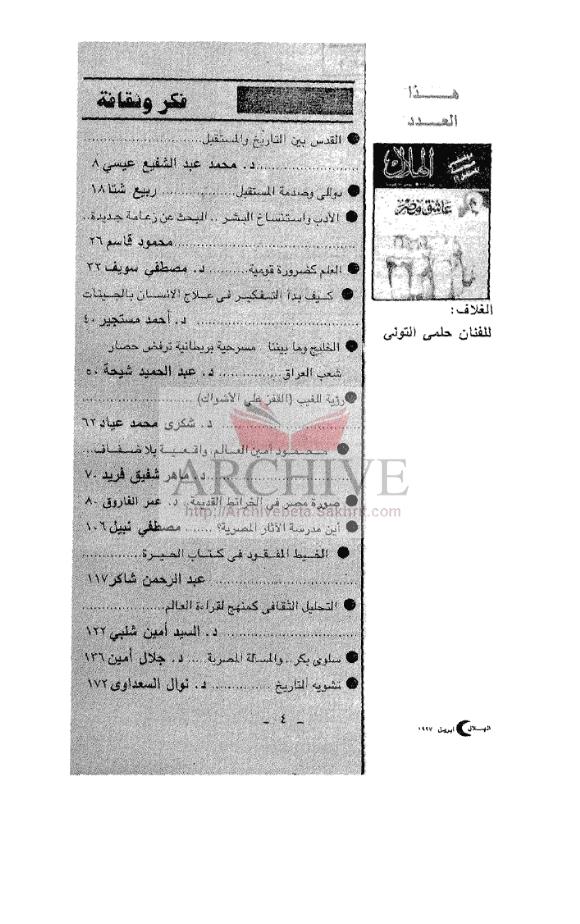 هذا
العدد
الهلال
عاشق مصر
الغلاف:
للفنان حلمى التونى
فكر وثقافة
● القدس بين التاريخ والمستقبل
د. محمد عبد الشفيع عيسى ٨
● دوللى وصدمة المستقبل ربيع شتا ١٨
● الأدب واستنساخ البشر .. البحث عن زعامة جديدة
محمود قاسم ٢٦
● العلم كضرورة قومية د. مصطفى سويف ٣٢
● كيف بدأ التفكير فى علاج الانسان بالجينات
د. أحمد مستجير ٤٠
● الخليج وما بيننا مسرحية بريطانية ترفض حصار
شعب العراق د. عبد الحميد شيحة ٥٠
● رؤية للغيب (القفز على الأشواك)
د. شكرى محمد عياد ٦٢
● محمود أمين العالم، واقعية بلا ضفاف
د. ماهر شفيق فريد ٧٠
● صورة مصر فى الخرائط القديمة د. عمر الفاروق ٨٠
● أين مدرسة الآثار المصرية؟ مصطفى نبيل ١٠٦
● الخيط المفقود فى كتاب الحيرة
عبد الرحمن شاكر ١١٧
● التحليل الثقافى كمنهج لقراءة العالم
د. السيد أمين شلبي ١٢٢
● سلوى بكر .. والمسألة المصرية د. جلال أمين ١٣٦
● تشويه التاريخ د. نوال السعداوى ١٧٢
- ٤ -
الهلال أبريل ١٩٩٧
ARCHIVE
http://Archivebeta.Sakhrit.com